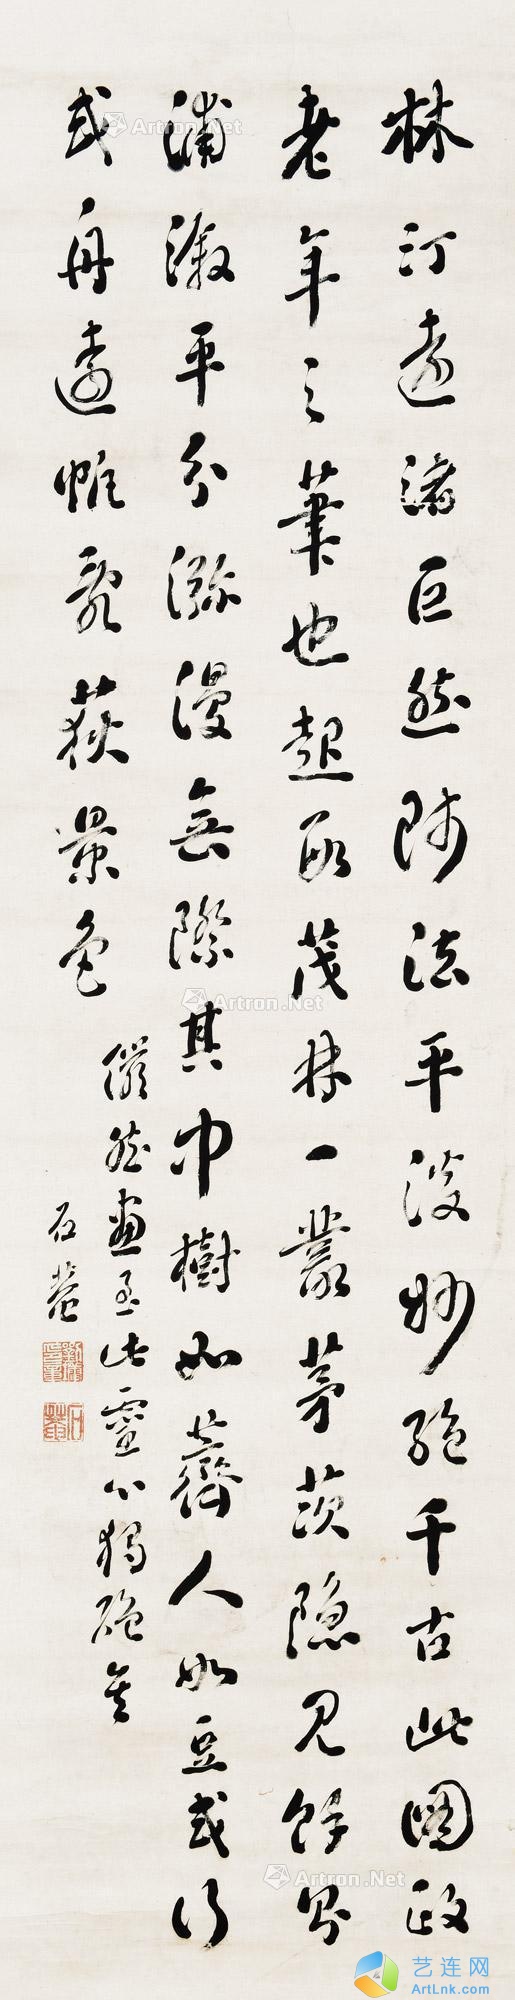 林汀遠渚巨然師法平淡妙絕千古此圖政
老年之筆也起段茂林一叢茅茨隱見餘
浦溆平分瀰漫無際其中樹如薺人如豆或行
或舟遠亂荻景色
儼然畫至此靈心獨絕矣
石菴
石菴
Artron.Net
Artron.Net
Artron.Net
Artron.Net
Artron.Net
艺连网
ArtLnk.com